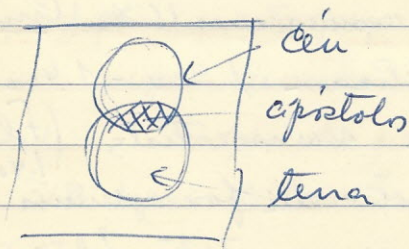 céu
apóstolos
terra